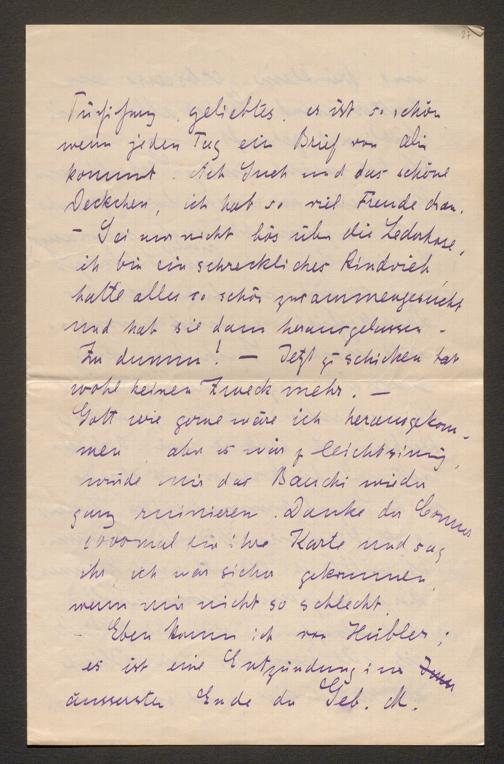 27
geliebtes, es ist so schön
wenn jeden Tag ein Brief von Dir
kommt. Ach Such und das schöne
Deckchen, ich hab so viel Freude dran.
– Sei nur nicht bös über die Lederhose,
ich bin ein schreckliches Rindvieh,
hatte alles so schön zusammengesucht
und hab sie dann herausgelassen –
Zu dumm! – Jetzt z schicken hat
wohl keinen Zweck mehr. –
Gott wie gerne wäre ich herausgekom-
men, aber es wär z leichtsinnig,
würde mir das Bauchi wieder
ganz ruinieren. Danke der
für ihre Karte und sag
ihr, ich wär sicher gekommen,
wenn mir nicht so schlecht.
– Eben komm ich von Hübler;
es ist eine Entzündung im
äussersten Ende der Geb. M.